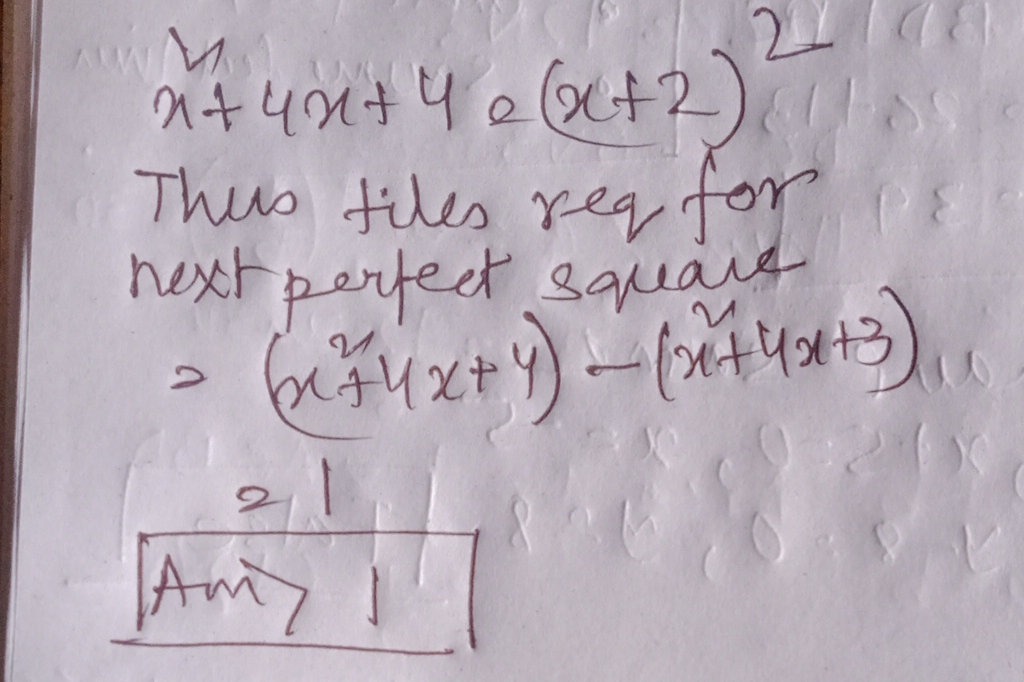 x² + 4x + 4 = (x+2)²
Thus tiles req for
next perfect square
= (x²+4x+4) - (x²+4x+3)
= 1
Ans> 1